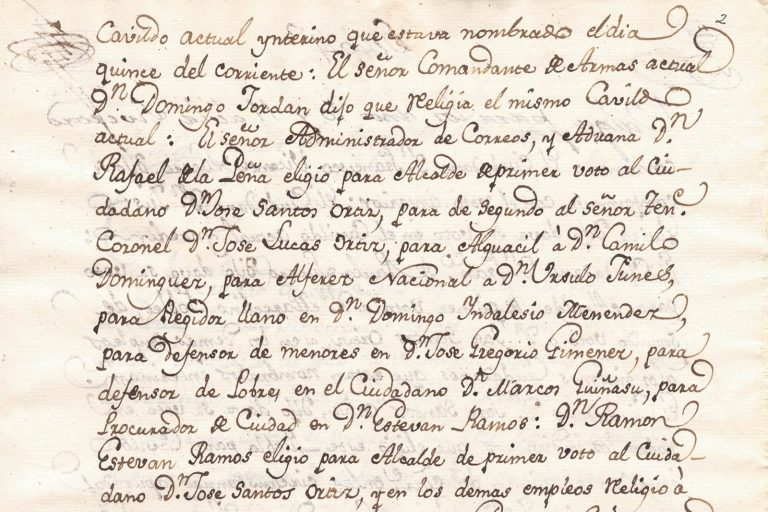 2
Cavildo actual ynterino que estava nombrado el dia
quince del corriente: El señor Comandante de Armas actual
Dn Domingo Jordan dijo que Religia el mismo Cavildo
actual: El señor Administrador de Correos, y Aduana Dn
Rafael de la Peña eligio para Alcalde de primer voto al Ciu-
dadano Dn Jose Santos Ortiz, para de segundo al señor Tene
Coronel Dn Jose Lucas Ortiz, para Alguacil à Dn Camilo
Dominguez, para Alferez Nacional a Dn Ursulo Funes,
para Regidor llano en Dn Domingo Indalesio Menendez,
para Defensor de menores en Dn Jose Gregorio Gimenez, para
defensor de Pobres en el Ciudadano Dn Marcos Guiñasu, para
Procurador de Ciudad en Dn Estevan Ramos: Dn Ramon
Estevan Ramos eligio para Alcalde de primer voto al Cuida-
dano Dn Jose Santos Ortiz, y en los demas empleos Religio à